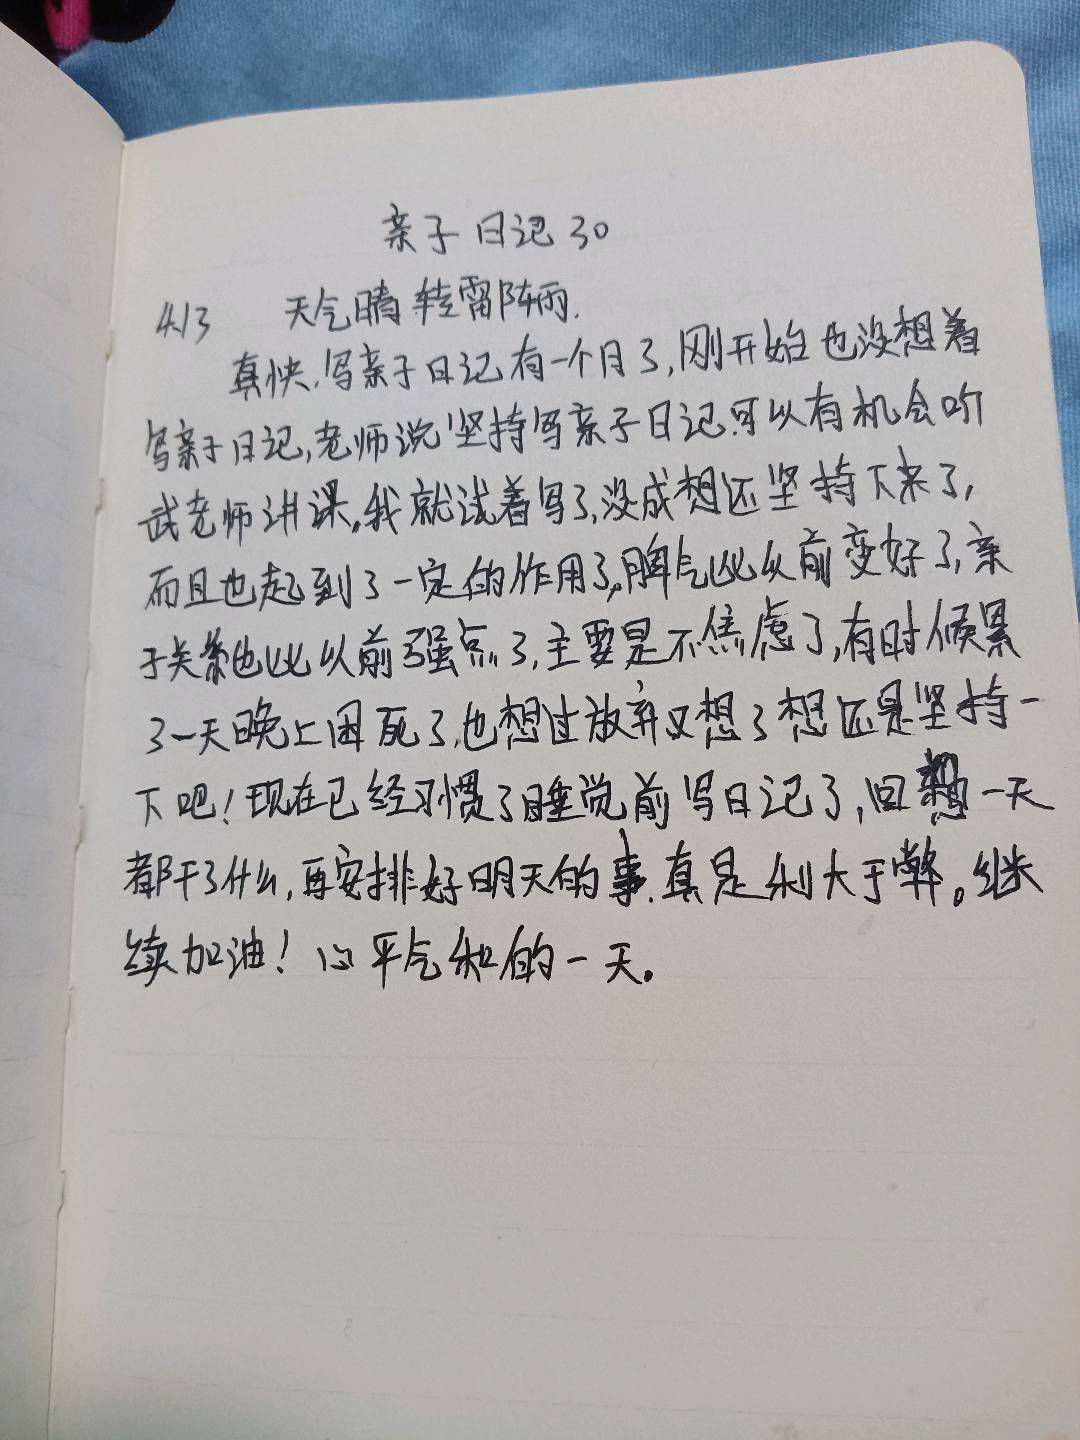 亲子日记30
4.13 天气晴转雷阵雨.
真快,写亲子日记有一个月了,刚开始也没想着
写亲子日记,老师说坚持写亲子日记可以有机会听
武老师讲课,我就试着写了,没成想还坚持下来了,
而且也起到了一定的作用了,脾气比以前变好了,亲
子关系也比以前强点了,主要是不焦虑了,有时候累
了一天晚上困死了,也想过放弃又想了想还是坚持一
下吧!现在已经习惯了睡觉前写日记了,回想一天
都干了什么,再安排好明天的事.真是利大于弊。继
续加油!心平气和的一天。